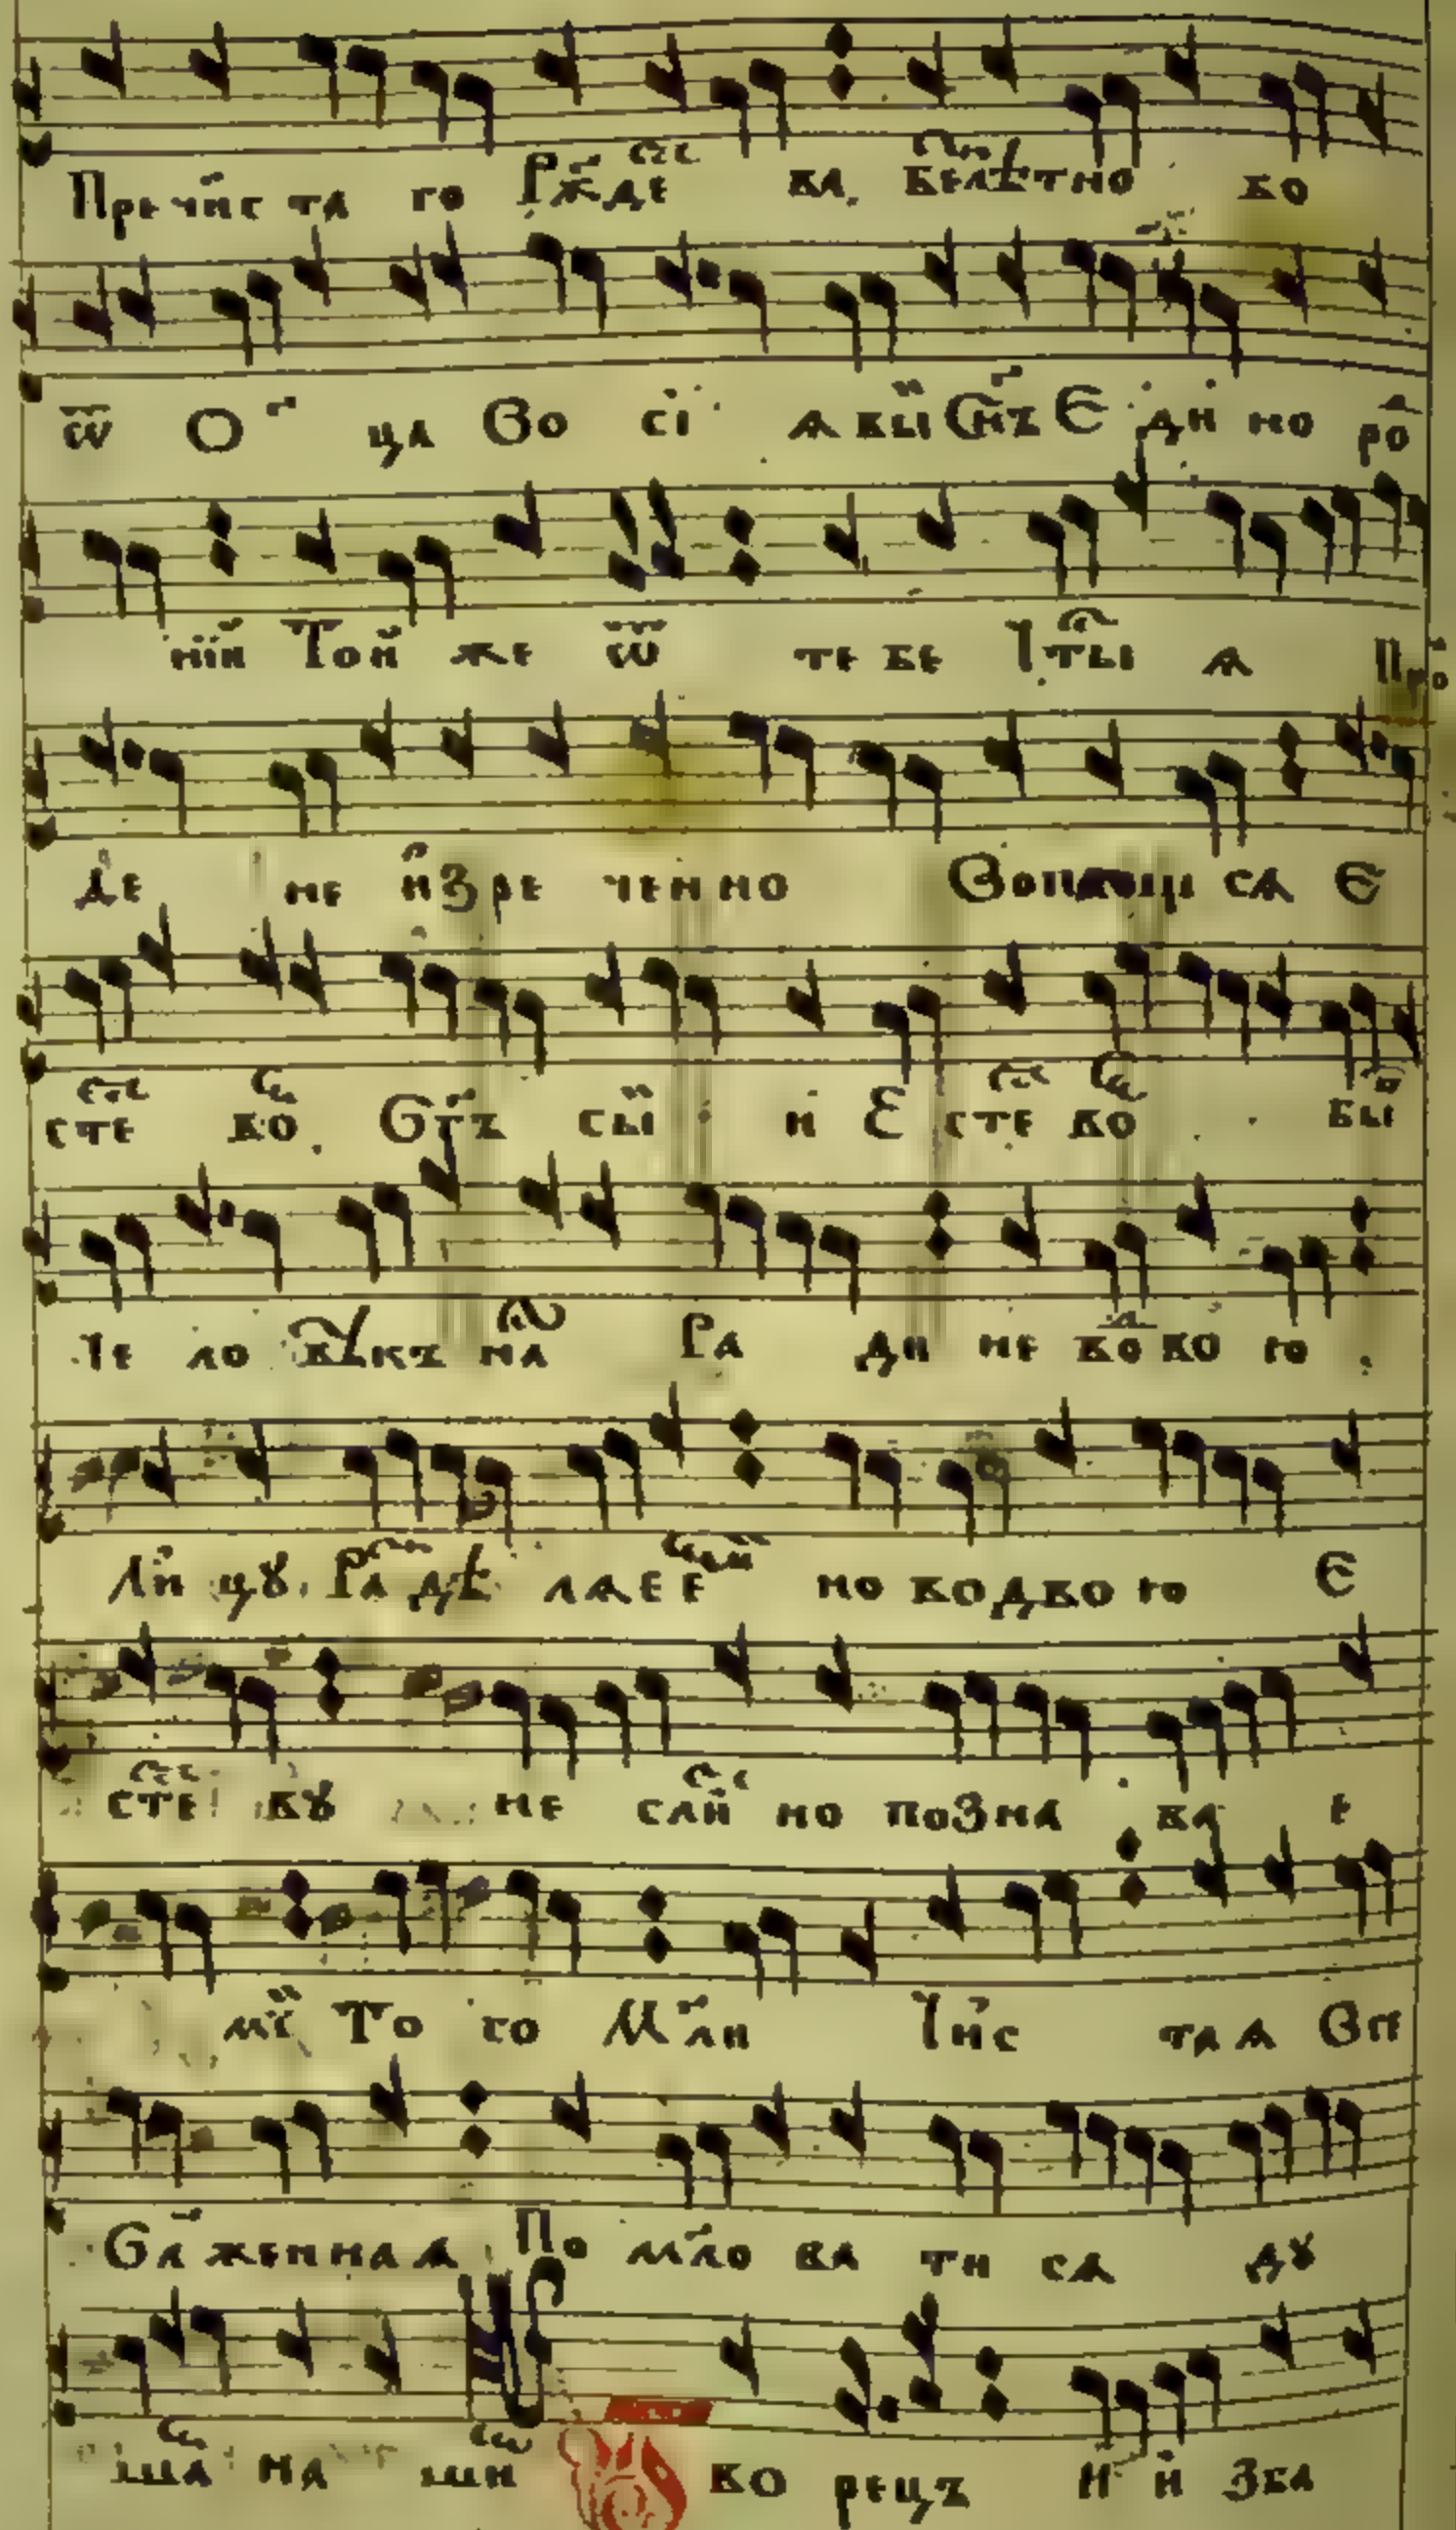 Пречис та го Рж҃де ва, безлѣтно во
ѿ О ц҃а Во сі ѧвыи Сн҃ъ Є ди но ро
ній Той же ѿ тебе Ч҃тыѧ Про
Де не изре ченно Вопло щи сѧ Є
сте во. Бг҃ъ сый и Є сте во бы
Че ло вѣкъ на Ра ди не во во ю
Ли цу. Ра дѣ лѧеє мо во дво ю Є
сте ву не сли но позна ва е
мі То го М҃ли Чис таѧ Вп
Бл҃женнаѧ По м҃ло ва ти сѧ ду
ша на ши во рецъ и и зба